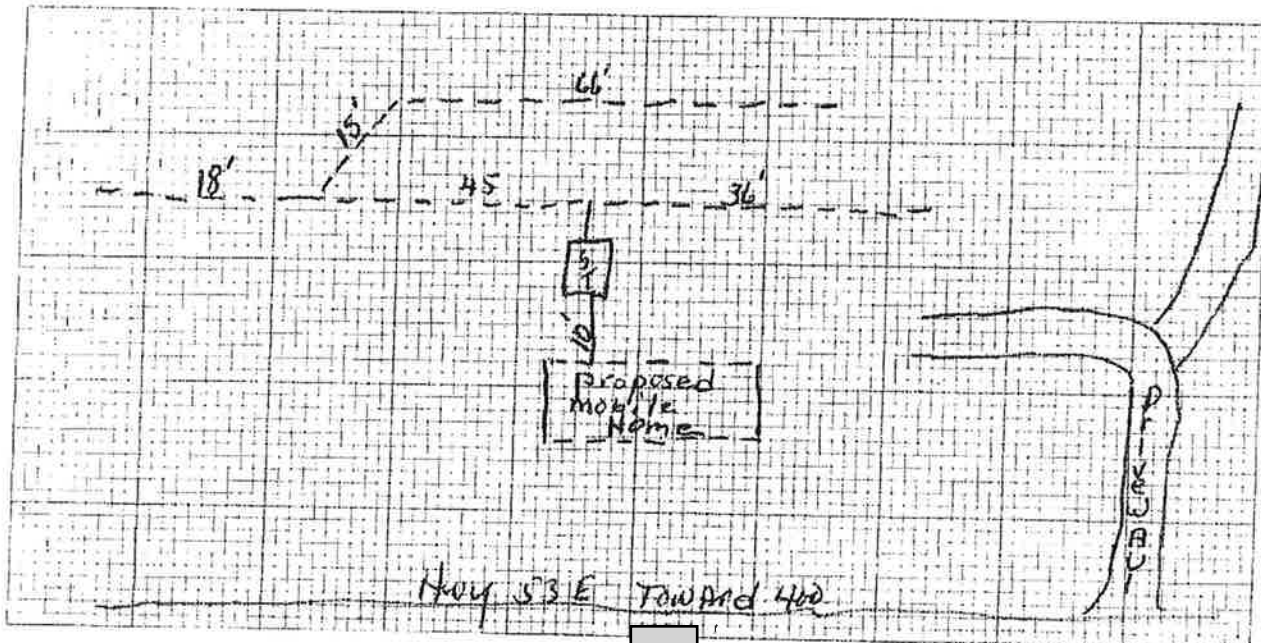 66'
15'
18'
45
36'
S
T
10'
proposed
mobile
Home
Hwy 53 E Toward 400